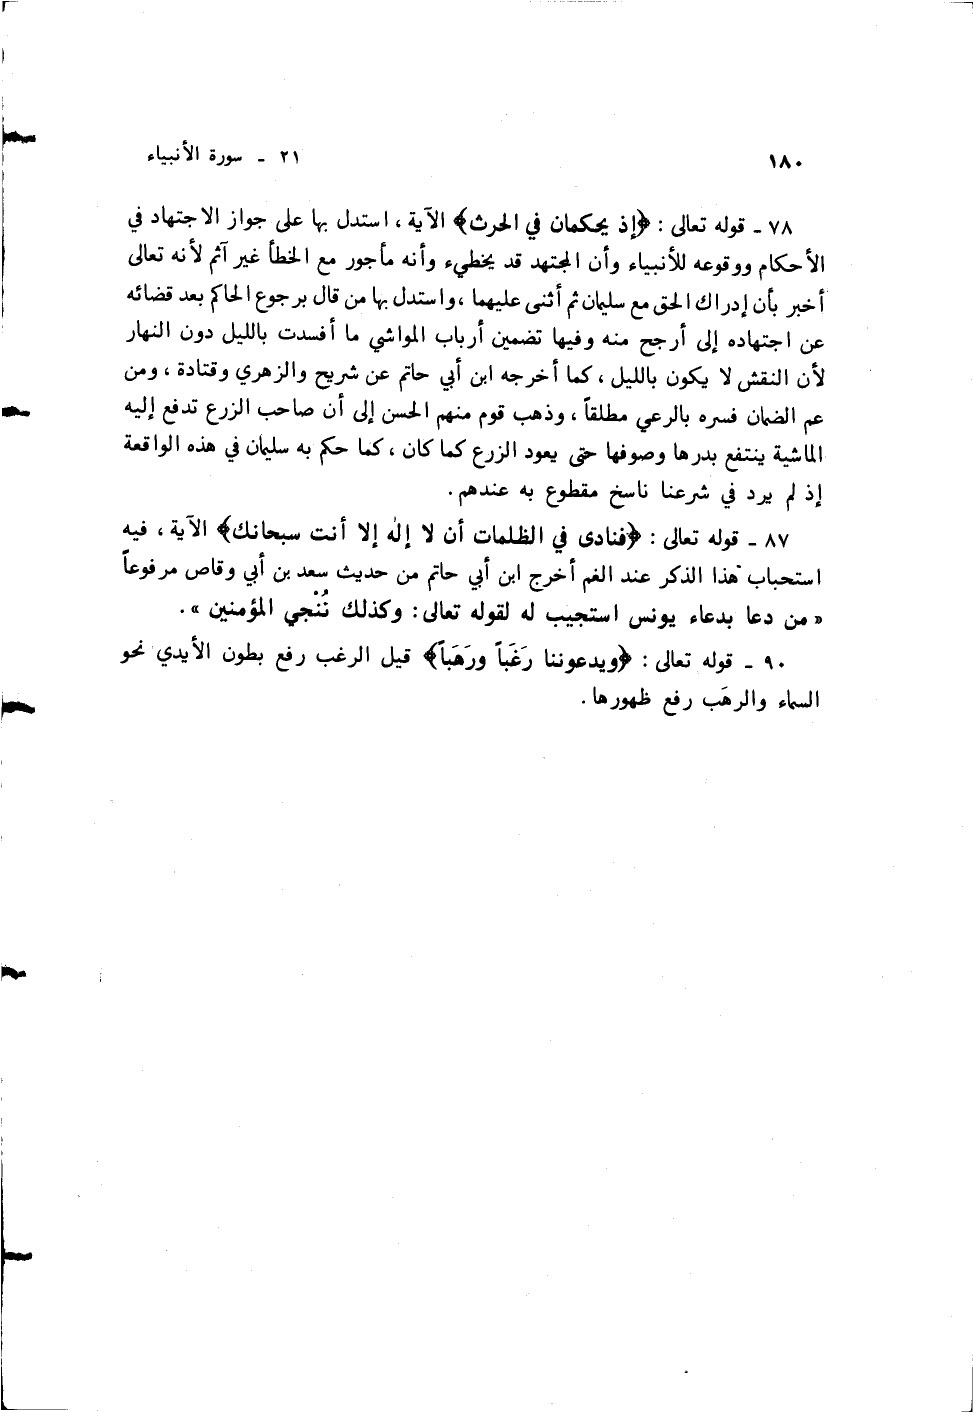 ١٨٠ ٢١ ـ سورة الأنبياء
٧٨ ـ قوله تعالى : ﴿إذ يحكمان في الحرث﴾ الآية ، استدل بها على جواز الاجتهاد في
الأحكام ووقوعه للأنبياء وأن المجتهد قد يخطيء وأنه مأجور مع الخطأ غير آثم لأنه تعالى
أخبر بأن إدراك الحق مع سليمان ثم أثنى عليهما ، واستدل بها من قال برجوع الحاكم بعد قضائه
عن اجتهاده إلى أرجح منه وفيها تضمين أرباب المواشي ما أفسدت بالليل دون النهار
لأن النقش لا يكون بالليل ، كما أخرجه ابن أبي حاتم عن شريح والزهري وقتادة ، ومن
عم الضمان فسره بالرعي مطلقاً ، وذهب قوم منهم الحسن إلى أن صاحب الزرع تدفع إليه
الماشية ينتفع بدرها وصوفها حتى يعود الزرع كما كان ، كما حكم به سليمان في هذه الواقعة
إذ لم يرد في شرعنا ناسخ مقطوع به عندهم .
٨٧ ـ قوله تعالى : ﴿فنادى في الظلمات أن لا إله إلا أنت سبحانك﴾ الآية ، فيه
استحباب هذا الذكر عند الغم أخرج ابن أبي حاتم من حديث سعد بن أبي وقاص مرفوعاً
« من دعا بدعاء يونس استجيب له لقوله تعالى : وكذلك نُنْجي المؤمنين » .
٩٠ ـ قوله تعالى : ﴿ويدعوننا رَغَباً ورَهَباً﴾ قيل الرغب رفع بطون الأيدي نحو
السماء والرهَب رفع ظهورها .